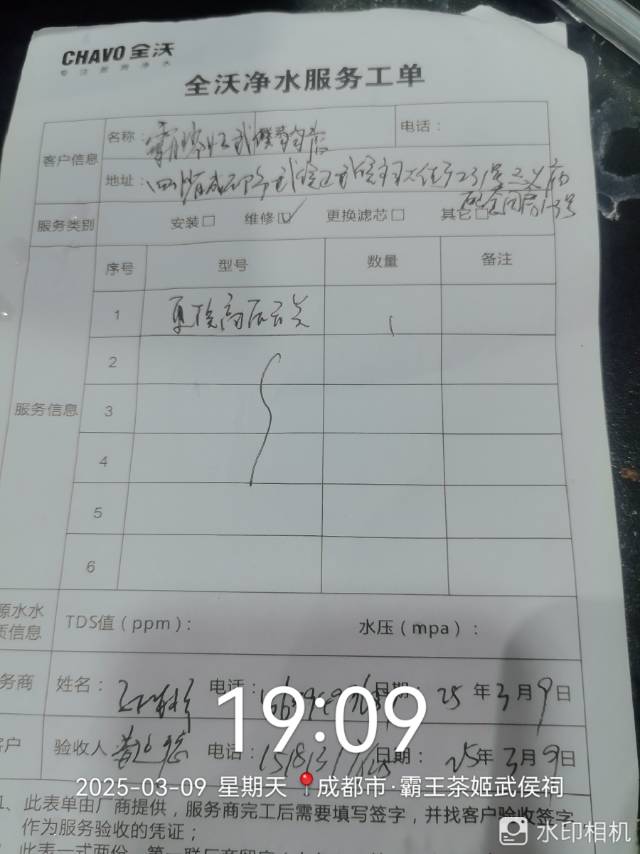 CHAVO 全沃
专注商用净水
全沃净水服务工单
客户信息
名称: 霸王茶姬武侯
电话:
地址: 四川省成都市武侯区武侯祠大街
服务类别 安装□ 维修☑ 更换滤芯□ 其它□
服务信息
序号 型号 数量 备注
1 更换高压开关 1
2
3
4
5
6
源水水
质信息
TDS值(ppm): 水压(mpa):
务商 姓名: 电话: 日期: 25年3月9日
客户 验收人 电话: 日期: 25年3月9日
19:09
2025-03-09 星期天 成都市·霸王茶姬武侯祠
1、此表单由厂商提供,服务商完工后需要填写签字,并找客户验收签字
作为服务验收的凭证;
此表一式两份
水印相机